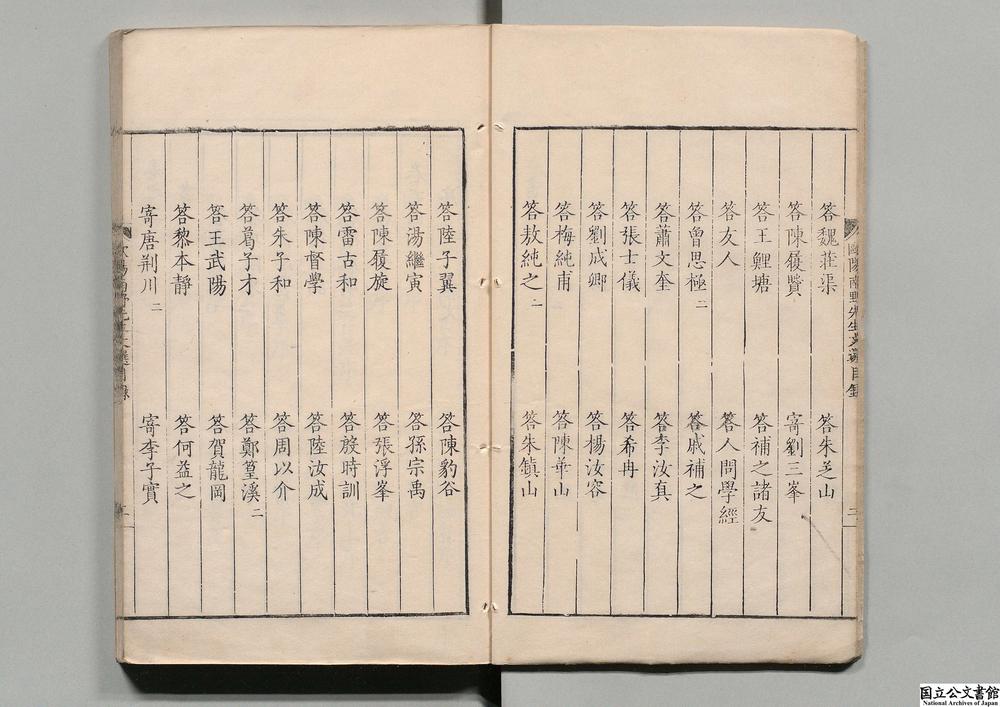 答魏莊渠　答朱芝山
答陳履賢　寄劉三峯
答王鯉塘　答補之諸友
答友人　答人問學經
答曾思極二　答戚補之
答蕭文奎　答李汝眞
答張士儀　答希冉
答劉成卿　答楊汝容
答梅純甫　答陳華山
答敖純之二　答朱鎮山
歐陽南野先生文選目錄　二
答陸子翼　答陳豹谷
答湯繼寅　答孫宗禹
答陳履旋　答張浮峯
答雷古和　答殷時訓
答陳督學　答陸汝成
答朱子和　答周以介
答葛子才　答鄭篁溪二
答王武陽　答賀龍岡
答黎本靜　答何益之
寄唐荆川二　寄李子實
歐陽南野先生文選目錄
国立公文書館
National Archives of Japan